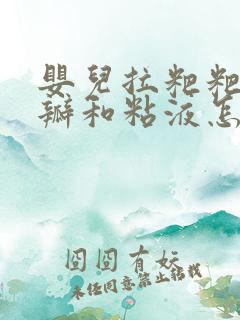 嬰兒拉粑粑
瓣和粘液怎
囧囧有妖
未经同意禁止转载